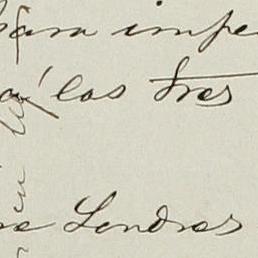 para impe
a' las tres
Londres